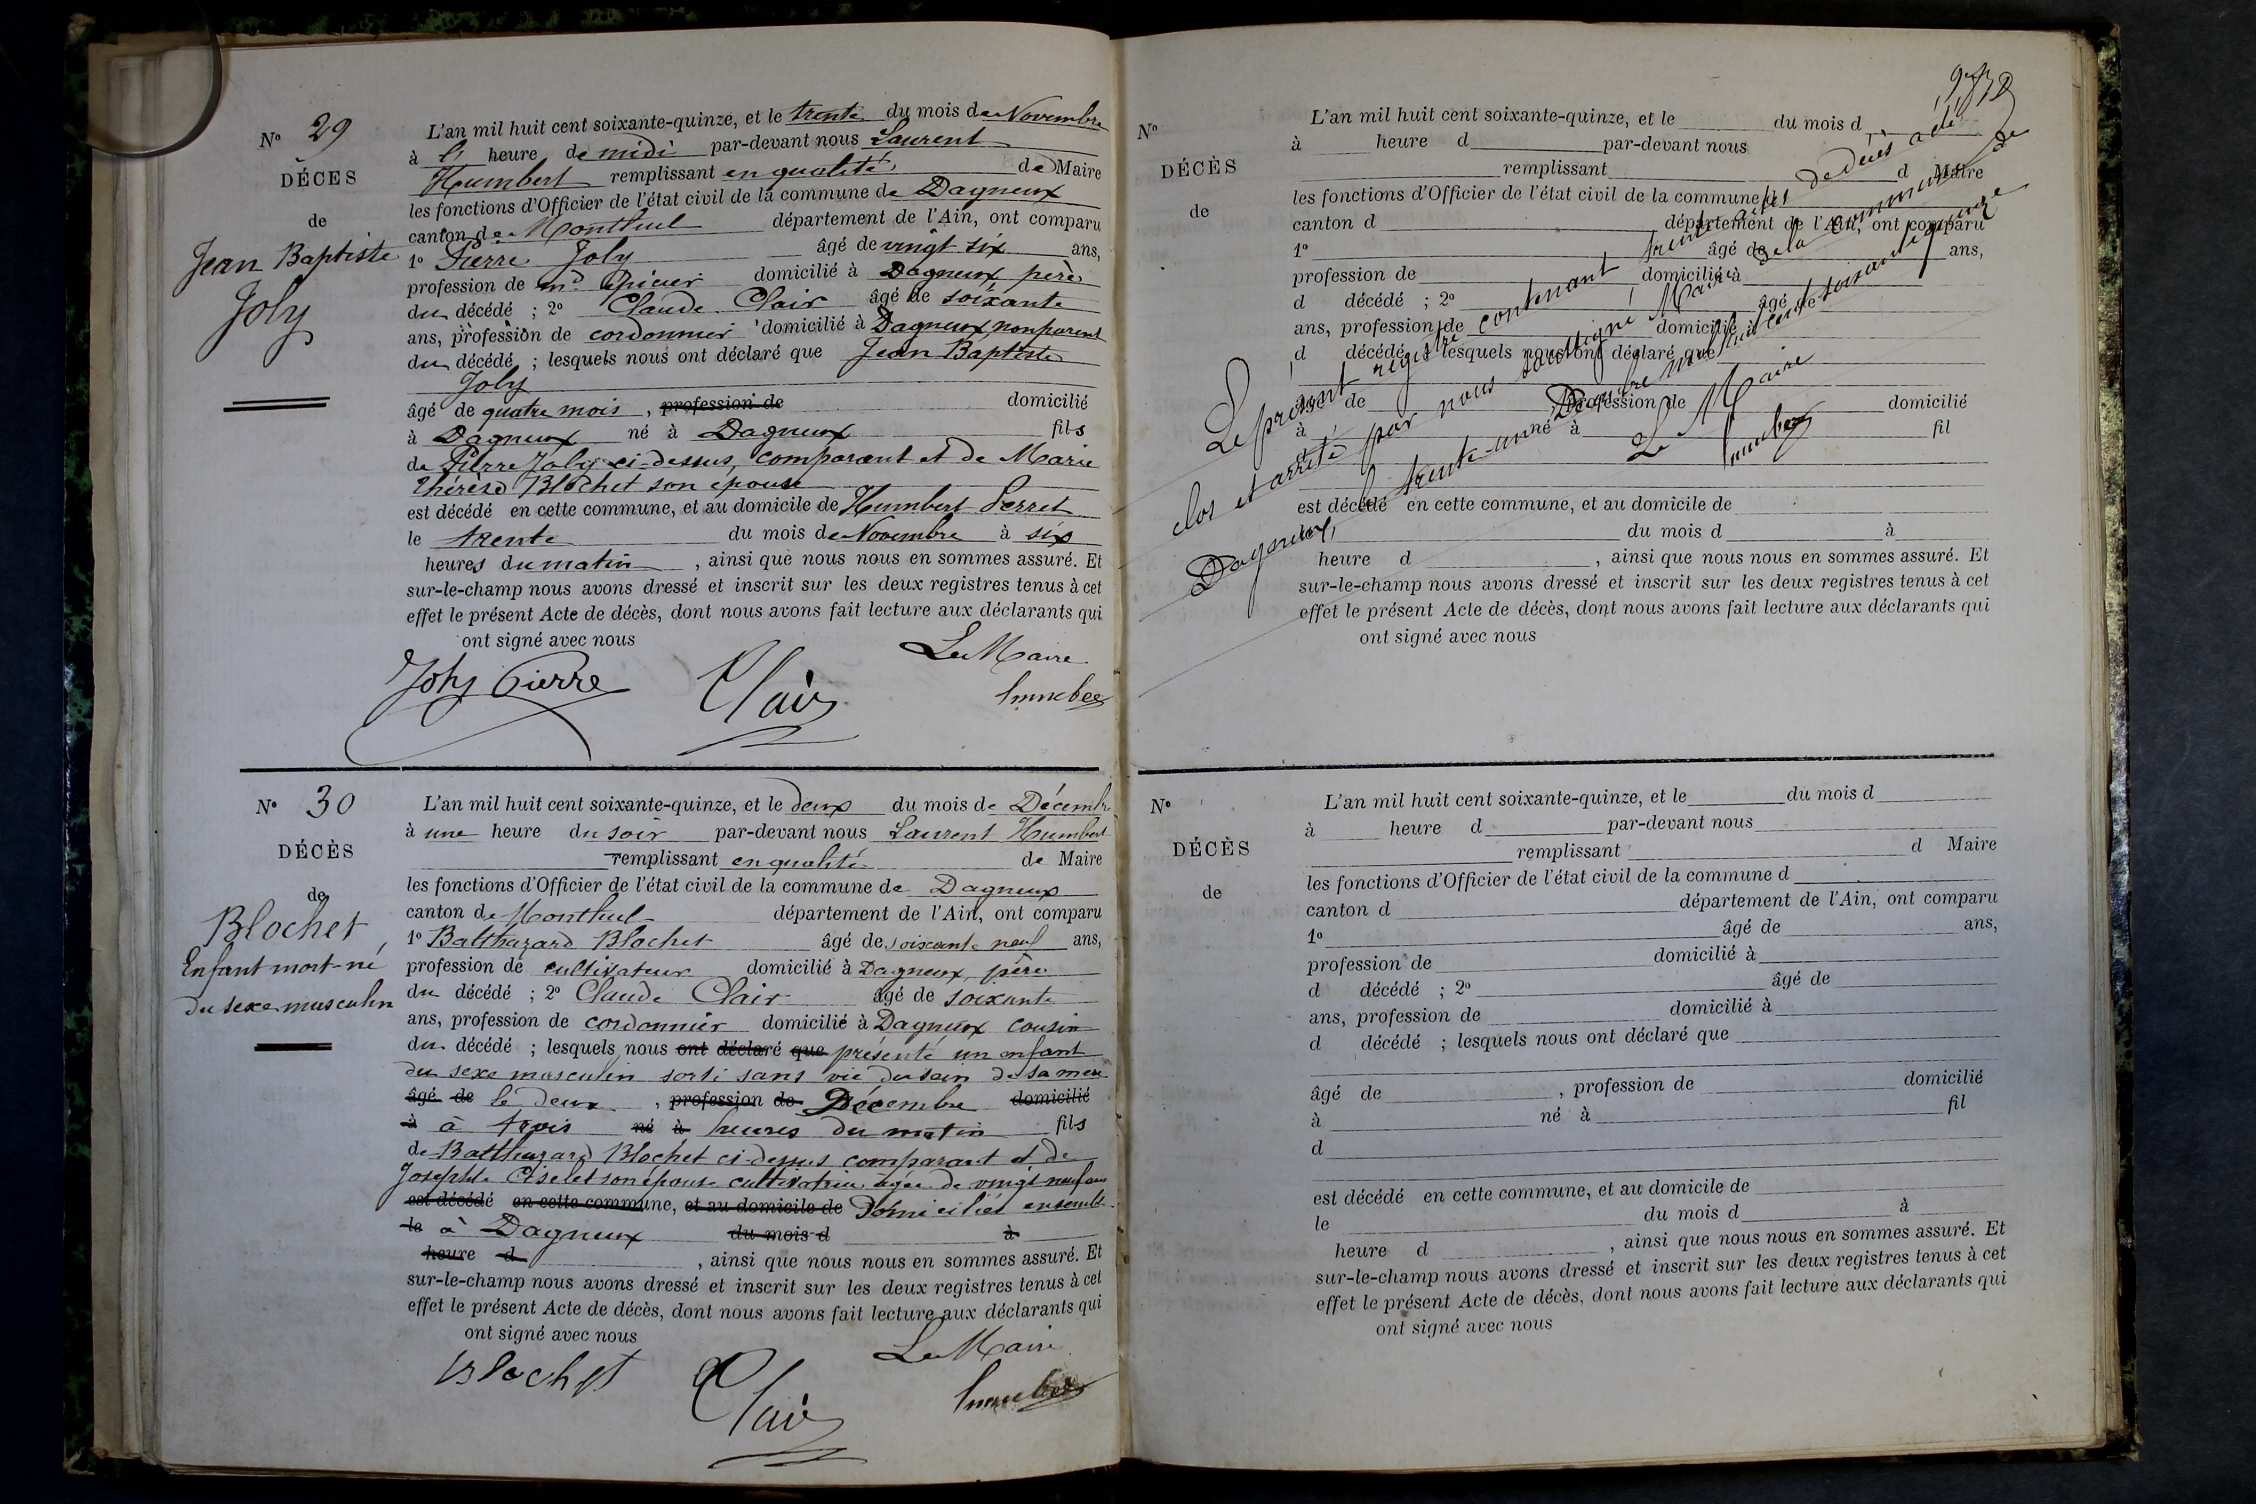 N° 29
DÉCES
de
Jean Baptiste
Joly
L'an mil huit cent soixante-quinze, et le trente du mois de Novembre
à l' heure de midi par-devant nous Laurent
Humbert remplissant en qualité de Maire
les fonctions d'Officier de l'état civil de la commune de Dagneux
canton de Montluel département de l'Ain, ont comparu
1° Pierre Joly âgé de vingt six ans,
profession de md Epicier domicilié à Dagneux père
du décédé ; 2° Claude Clair âgé de soixante
ans, profession de cordonnier domicilié à Dagneux non parent
du décédé ; lesquels nous ont déclaré que Jean Baptiste
Joly
âgé de quatre mois , profession de domicilié
à Dagneux né à Dagneux fils
de Pierre Joly ci-dessus, comparant et de Marie
thérèse Blochet son épouse
est décédé en cette commune, et au domicile de Humbert Perret
le trente du mois de Novembre à six
heures du matin , ainsi que nous nous en sommes assuré. Et
sur-le-champ nous avons dressé et inscrit sur les deux registres tenus à cet
effet le présent Acte de décès, dont nous avons fait lecture aux déclarants qui
ont signé avec nous
Le Maire
Joly Pierre Clair Humbert
N° 30
DÉCÈS
de
Blochet
Enfant mort-né
du sexe masculin
L'an mil huit cent soixante-quinze, et le deux du mois de Décembre
à une heure du soir par-devant nous Laurent Humbert
remplissant en qualité de Maire
les fonctions d'Officier de l'état civil de la commune de Dagneux
canton de Montluel département de l'Ain, ont comparu
1° Balthazard Blochet âgé de soixante neuf ans,
profession de cultivateur domicilié à Dagneux, père
du décédé ; 2° Claude Clair âgé de soixante
ans, profession de cordonnier domicilié à Dagneux cousin
du décédé ; lesquels nous ont déclaré que présenté un enfant
du sexe masculin sorti sans vie du sein de sa mère
âgé de le deux , profession de Décembre domicilié
à à trois né à heures du matin fils
de Balthazard Blochet ci-dessus comparant et de
Josephte Ciselet son épouse cultivatrice âgée de vingt neuf ans
est décédé en cette commune, et au domicile de Domiciliés ensemble
le à Dagneux du mois d à
heure d , ainsi que nous nous en sommes assuré. Et
sur-le-champ nous avons dressé et inscrit sur les deux registres tenus à cet
effet le présent Acte de décès, dont nous avons fait lecture aux déclarants qui
ont signé avec nous
Le Maire
Blochet Clair Humbert
N°
DÉCÈS
de
L'an mil huit cent soixante-quinze, et le du mois d
à heure d par-devant nous
remplissant d Maire
les fonctions d'Officier de l'état civil de la commune d
canton d département de l'Ain, ont comparu
1° âgé de ans,
profession de domicilié à
d décédé ; 2° âgé de
ans, profession de domicilié à
d décédé ; lesquels nous ont déclaré que
âgé de , profession de domicilié
à né à fil
d
est décédé en cette commune, et au domicile de
le du mois d à
heure d , ainsi que nous nous en sommes assuré. Et
sur-le-champ nous avons dressé et inscrit sur les deux registres tenus à cet
effet le présent Acte de décès, dont nous avons fait lecture aux déclarants qui
ont signé avec nous
Le présent registre contenant trente actes de décès a été
clos et arrêté par nous soussigné Maire de la commune de
Dagneux, le trente-un Décembre mil huit cent soixante quinze
Le Maire
Humbert
N°
DÉCÈS
de
L'an mil huit cent soixante-quinze, et le du mois d
à heure d par-devant nous
remplissant d Maire
les fonctions d'Officier de l'état civil de la commune d
canton d département de l'Ain, ont comparu
1° âgé de ans,
profession de domicilié à
d décédé ; 2° âgé de
ans, profession de domicilié à
d décédé ; lesquels nous ont déclaré que
âgé de , profession de domicilié
à né à fil
d
est décédé en cette commune, et au domicile de
le du mois d à
heure d , ainsi que nous nous en sommes assuré. Et
sur-le-champ nous avons dressé et inscrit sur les deux registres tenus à cet
effet le présent Acte de décès, dont nous avons fait lecture aux déclarants qui
ont signé avec nous